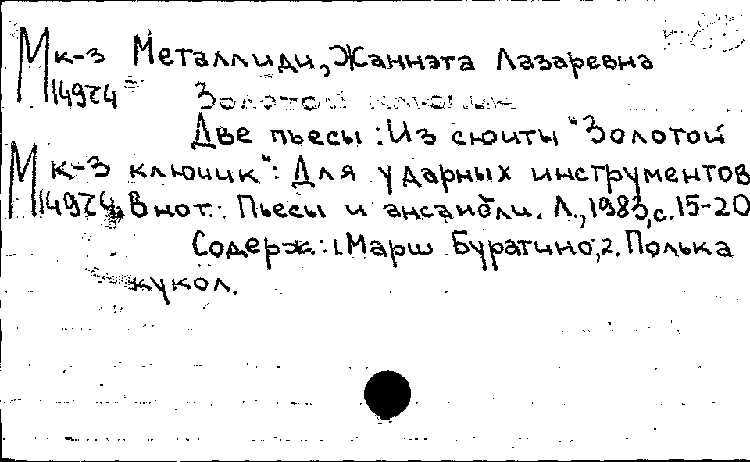 Мк-3 Металлиди, Жаннэта Лазаревна
Золотой ключик
Две пьесы: Из сюиты "Золотой
Мк-3 ключик": Для ударных инструментов
В нот.: Пьесы и ансамбли. Л., 1983, с. 15-20
Содерж: 1. Марш Буратино, 2. Полька
кукол.